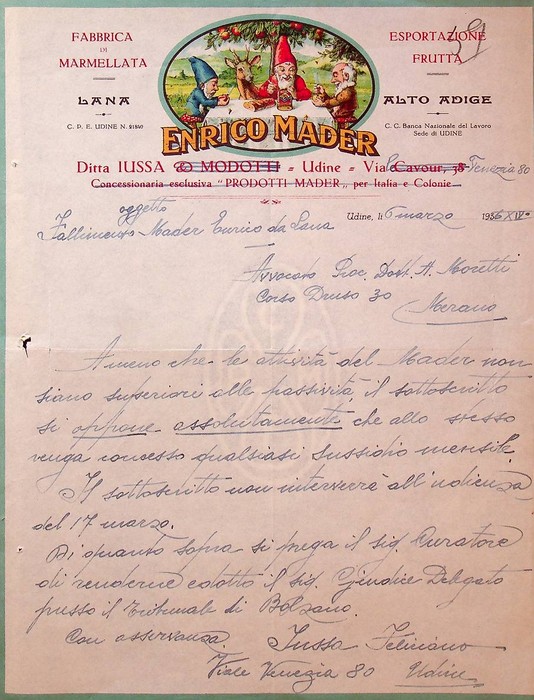 FABBRICA
DI
MARMELLATA
ESPORTAZIONE
FRUTTA
59
LANA
ALTO ADIGE
C. P. E. UDINE N. 21840
C. C. Banca Nazionale del Lavoro
Sede di UDINE
ENRICO MADER
Ditta IUSSA & MODOTTI = Udine = Via Cavour, Venezia 80
Concessionaria esclusiva "PRODOTTI MADER" per Italia e Colonie
oggetto
Udine, li 6 marzo 1936 XIV°
Fallimento Mader Enrico da Lana
Avvocato Proc. Dott. A. Moretti
Corso Druso 30
Merano
Ameno che le attività del Mader non
siano superiori alle passività, il sottoscritto
si oppone assolutamente che allo stesso
venga concesso qualsiasi sussidio mensile.
Il sottoscritto non interverrà all'udienza
del 17 marzo.
Di quanto sopra si prega il sig. Curatore
di renderne edotto il sig. Giudice Delegato
presso il Tribunale di Bolzano.
Con osservanza.
Iussa Feliciano
Viale Venezia 80 Udine